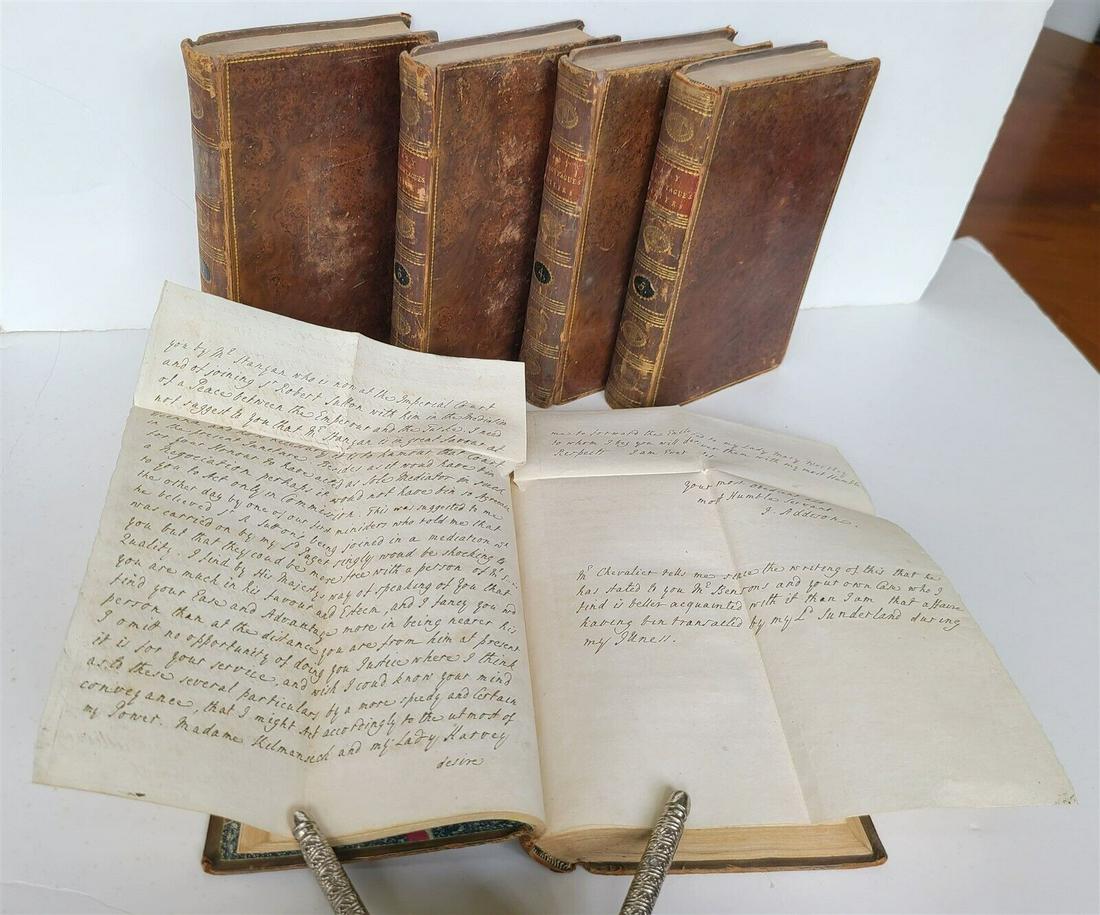 3.
4.
5.
you by Mr. Stanyan who is now at the Imperial Court
and of joining Sr. Robert Sutton with him in the Mediation
of a Peace between the Emperour and the Turke. I need
not suggest to you that Mr. Stanyan is in great favour at
to humour that Court
in the present Juncture. Besides as it would have bin
for your Honour to have acted as sole Mediator in such
a Negociation perhaps it would not have bin so agreeable
to you to Act only in Commission. This was suggested to me
the other day by one of our first ministers who told me that
he believed Sr. R. Sutton's being joined in a mediation wh
was carried on by my Ld. Paget singly woud be shocking to
you but that they coud be more free with a person of his
Quality. I find by His Majestys way of speaking of you that
you are much in his favour and Esteem, and I fancy you wd
find your Ease and Advantage more in being nearer his
person than at the distance you are from him at present
I omit no opportunity of doing you Justice where I think
it is for your service, and wish I coud know your mind
as to these several particulars by a more speedy and Certain
conveyance, that I might Act accordingly to the utmost of
my Power. Madame Kilmanseck and my Lady Harvey
desire
me to forward the to my Lady Mary Wortley
to whom I hope you will deliver them with my most Humble
Respects I am Ever
your most obedient and
most Humble Servant
J. Addison.
Mr. Chevalier tells me since the writing of this that he
has stated to you Mr. Bensons and your own Case who I
find is better acquainted with it than I am that affaire
having bin transacted by my Ld. Sunderland during
my Illness.